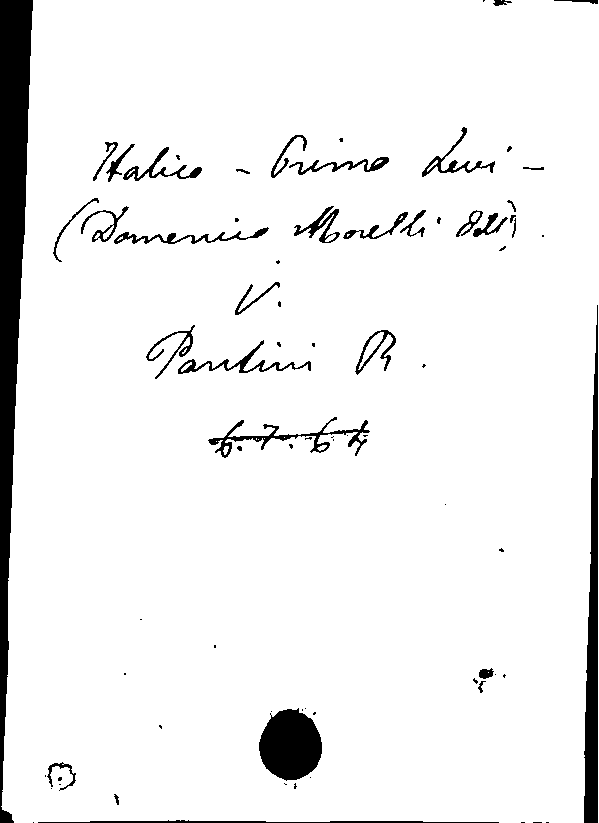 Italico - Primo Levi -
(Domenico Morelli
V.
Pantini R.
6.7.64